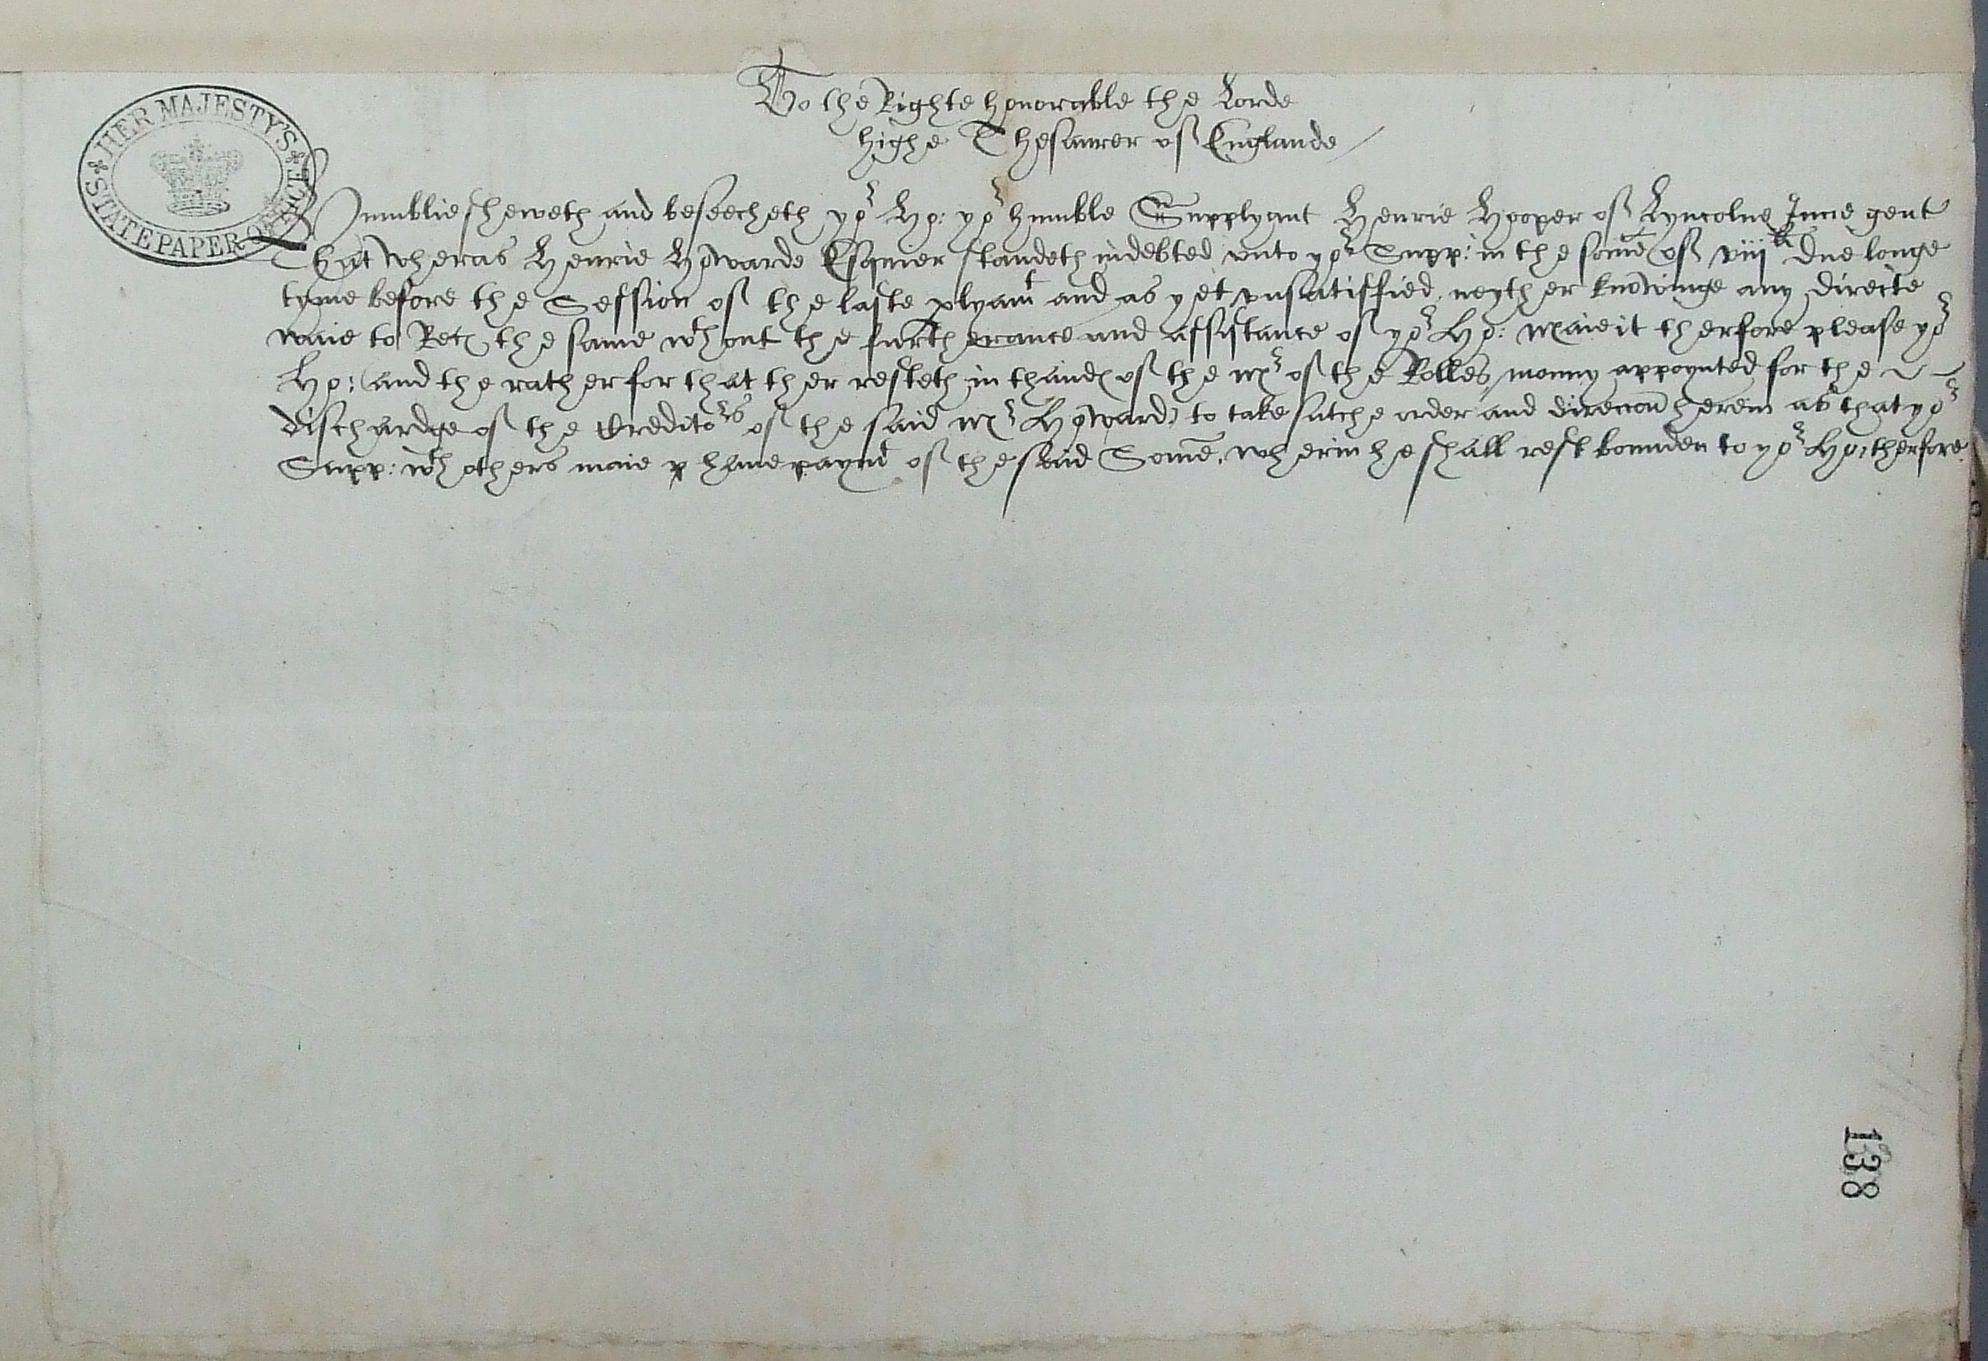 HER MAJESTY'S STATE PAPER OFFICE
To the Righte honorable the Lorde
highe Thesaurer of Englande
Humblie sheweth and beseecheth yor Ho: yor humble Supplyant Henrie Hooper of Lyncolns Inne gent
That wheras Henrie Howarde Esquier standeth indebted vnto yor Supp: in the some of viijli due longe
tyme before the Session of the laste plyamt and as yet vnsatisfied, neyther knowinge any directe
waie to Rec the same wthout the furtherance and assistance of yor Ho: Maie it therfore please yor
Ho: (and the rather for that ther resteth in thandes of the Mr of the Rolles, monny appoynted for the
dischardge of the Creditors of the said Mr Howard) to take sutche order and direccon herein as that yor
Supp: wth others maie p haue paymt of the said Some, wherin he shall rest bounden to yor Ho: therfore.
138